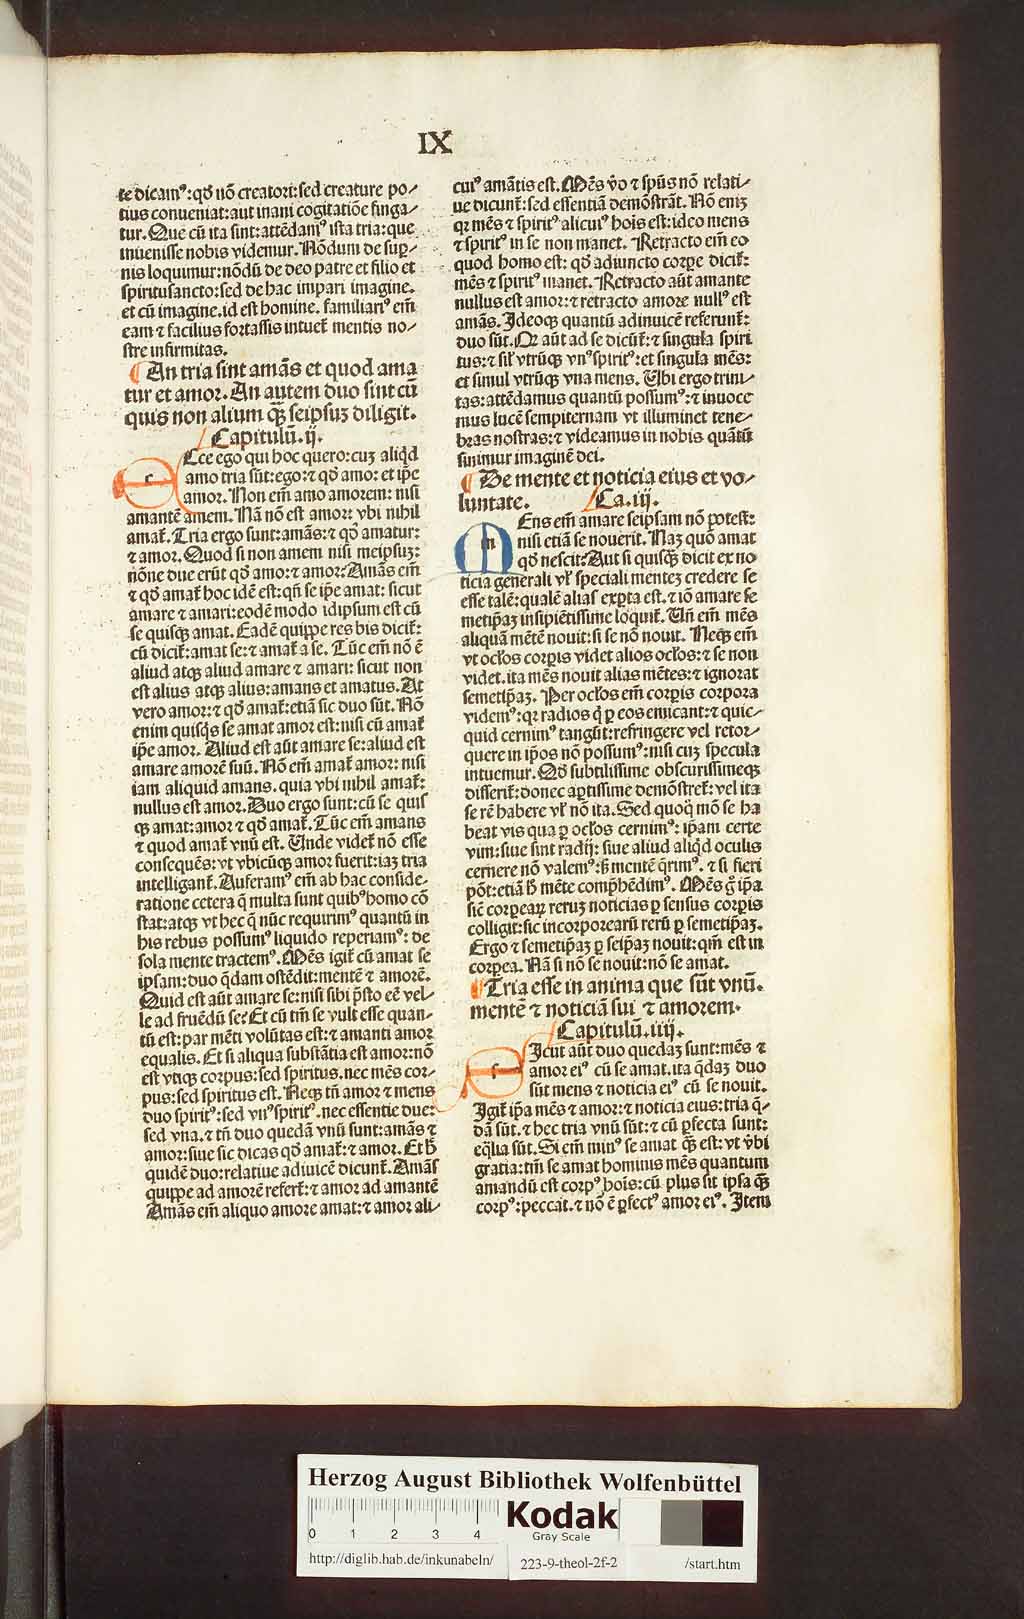 IX
te dicamꝰ: qđ nō creatori: sed creature po⸗
tius conueniat: aut inani cogitatiōe finga⸗
tur. Que cū ita sint: attēdamꝰ ista tria: que
inuenisse nobis videmur. Nōdum de suꝑ⸗
nis loquimur: nōdū de deo patre et filio et
spiritusancto: sed de hac impari imagine.
et cū imagine. id est homine. familiariꝰ em̄
eam ⁊ facilius fortassis intuet᷑ mentis no⸗
stre infirmitas.
¶ An tria sint amās et quod ama
tur et amor. An autem duo sint cū
quis non alium q̄ꝫ seipsuꝫ diligit.
Capitulū. ij.
Ecce ego qui hoc quero: cuꝫ aliqd
amo tria sūt: ego: ⁊ qđ amo: et ip̄e
amor. Non em̄ amo amorem: nisi
amantē amem. Nā nō est amor: vbi nihil
amat᷑. Tria ergo sunt: amās: ⁊ qđ amatur:
⁊ amor. Quod si non amem nisi meipsuꝫ:
nōne due erūt qđ amo: ⁊ amor? Amās em̄
⁊ qđ amat᷑ hoc idē est: qn̄ se ip̄e amat: sicut
amare ⁊ amari: eodē modo idipsum est cū
se quisqꝫ amat. Eadē quippe res bis dicit᷑:
cū dicit᷑: amat se: ⁊ amat᷑ a se. Tūc em̄ nō ē
aliud atqꝫ aliud amare ⁊ amari: sicut non
est alius atqꝫ alius: amans et amatus. At
vero amor: ⁊ qđ amat᷑: etiā sic duo sūt. Nō
enim quisqꝫ se amat amor est: nisi cū amat᷑
ip̄e amor. Aliud est aūt amare se: aliud est
amare amorē suū. Nō em̄ amat᷑ amor: nisi
iam aliquid amans. quia vbi nihil amat᷑:
nullus est amor. Duo ergo sunt: cū se quis
qꝫ amat: amor ⁊ qđ amat᷑. Tūc em̄ amans
⁊ quod amat᷑ vnū est. Unde videt᷑ nō esse
consequēs: vt vbicūqꝫ amor fuerit: iaꝫ tria
intelligant᷑. Auferamꝰ em̄ ab hac conside⸗
ratione cetera q̄ multa sunt quibꝰ homo cō
stat: atqꝫ vt hec q̄ nūc requirimꝰ quantū in
his rebus possumꝰ liquido reperiamꝰ: de
sola mente tractemꝰ. Mēs igit᷑ cū amat se
ipsam: duo q̄dam ostēdit: mentē ⁊ amorē.
Quid est aūt amare se: nisi sibi p̄sto eē vel⸗
le ad fruēdū se? Et cū tm̄ se vult esse quan⸗
tū est: par mēti volūtas est: ⁊ amanti amor
equalis. Et si aliqua substātia est amor: nō
est vtiqꝫ corpus: sed spiritus. nec mēs cor⸗
pus: sed spiritus est. Neqꝫ tn̄ amor ⁊ mens
duo spiritꝰ: sed vnꝰ spiritꝰ. nec essentie due:
sed vna. ⁊ tn̄ duo quedā vnū sunt: amās ⁊
amor: siue sic dicas qđ amat᷑: ⁊ amor. Et h̄
quidē duo: relatiue adiuicē dicunt᷑. Amās
quippe ad amorē refert᷑: ⁊ amor ad amantē
Amās em̄ aliquo amore amat: ⁊ amor ali⸗
cuiꝰ amātis est. Mēs v̄o ⁊ spūs nō relati⸗
ue dicunt᷑: sed essentiā demōstrāt. Nō eniꝫ
qꝛ mēs ⁊ spiritꝰ alicuiꝰ hoīs est: ideo mens
⁊ spiritꝰ in se non manet. Retracto em̄ eo
quod homo est: qđ adiuncto corꝑe dicit᷑:
mēs ⁊ spiritꝰ manet. Retracto aūt amante
nullus est amor: ⁊ retracto amore nullꝰ est
amās. Ideoqꝫ quantū adinuicē referunt᷑:
duo sūt. Qꝛ aūt ad se dicūt᷑: ⁊ singula spiri
tus: ⁊ sil᷑ vtrūqꝫ vnꝰ spiritꝰ: et singula mēs:
et simul vtrūqꝫ vna mens. Ubi ergo trini⸗
tas: attēdamus quantū possumꝰ: ⁊ inuoce
mus lucē sempiternam vt illuminet tene⸗
bras nostras: ⁊ videamus in nobis quātū
sinimur imaginē dei.
¶ De mente et noticia eius et vo⸗
luntate. Ca. iij.
Mens em̄ amare seipsam nō potest:
nisi etiā se nouerit. Naꝫ quō amat
qđ nescit? Aut si quisqꝫ dicit ex no
ticia generali vl᷑ speciali menteꝫ credere se
esse talē: qualē alias exꝑta est. ⁊ iō amare se
metip̄aꝫ insipiētissime loquit᷑. Un̄ em̄ mēs
aliquā mētē nouit: si se nō nouit. Neqꝫ em̄
vt ocl̄os corꝑis videt alios ocl̄os: ⁊ se non
videt. ita mēs nouit alias mētes: ⁊ ignorat
semetip̄aꝫ. Per ocl̄os em̄ corꝑis corpora
videmꝰ: qꝛ radios q̄ ꝑ eos emicant: ⁊ quic⸗
quid cernimꝰ tangūt: refringere vel retor⸗
quere in ip̄os nō possumꝰ: nisi cuꝫ specula
intuemur. Qđ subtilissime obscurissimeqꝫ
disserit᷑: donec aꝑtissime demōstret᷑: vel ita
se rē habere vl᷑ nō ita. Sed quoqꝫ mō se ha
beat vis qua ꝑ ocl̄os cernimꝰ: ip̄am certe
vim: siue sint radij: siue aliud aliqd oculis
cernere nō valemꝰ: sꝫ mentē q̄rimꝰ. ⁊ si fieri
pōt: etiā h̄ mēte comp̄hēdimꝰ. Mēs gͦ ip̄a
sic̄ corꝑeaꝝ reruꝫ noticias ꝑ sensus corꝑis
colligit: sic incorporearū rerū ꝑ semetip̄aꝫ.
Ergo ⁊ semetip̄aꝫ ꝑ seip̄aꝫ nouit: qm̄ est in
corꝑea. Nā si nō se nouit: nō se amat.
¶ Tria esse in anima que sūt vnū.
mentē ⁊ noticiā sui ⁊ amorem.
Capitulū. iiij.
Sicut aūt duo quedaꝫ sunt: mēs ⁊
amor eiꝰ cū se amat. ita q̄daꝫ duo
sūt mens ⁊ noticia eiꝰ cū se nouit.
Igit᷑ ip̄a mēs ⁊ amor: ⁊ noticia eius: tria q̄⸗
dā sūt. ⁊ hec tria vnū sūt: ⁊ cū ꝑfecta sunt:
eq̄lia sūt. Si em̄ minꝰ se amat q̄ꝫ est: vt v̄bi
gratia: tm̄ se amat hominis mēs quantum
amandū est corpꝰ hoīs: cū plus sit ipsa q̄ꝫ
corpꝰ: peccat. ⁊ nō ē ꝑfectꝰ amor eiꝰ. Item
Herzog August Bibliothek Wolfenbüttel
0 1 2 3 4
Kodak
Gray Scale
http://diglib.hab.de/inkunabeln/ 223-9-theol-2f-2 /start.htm